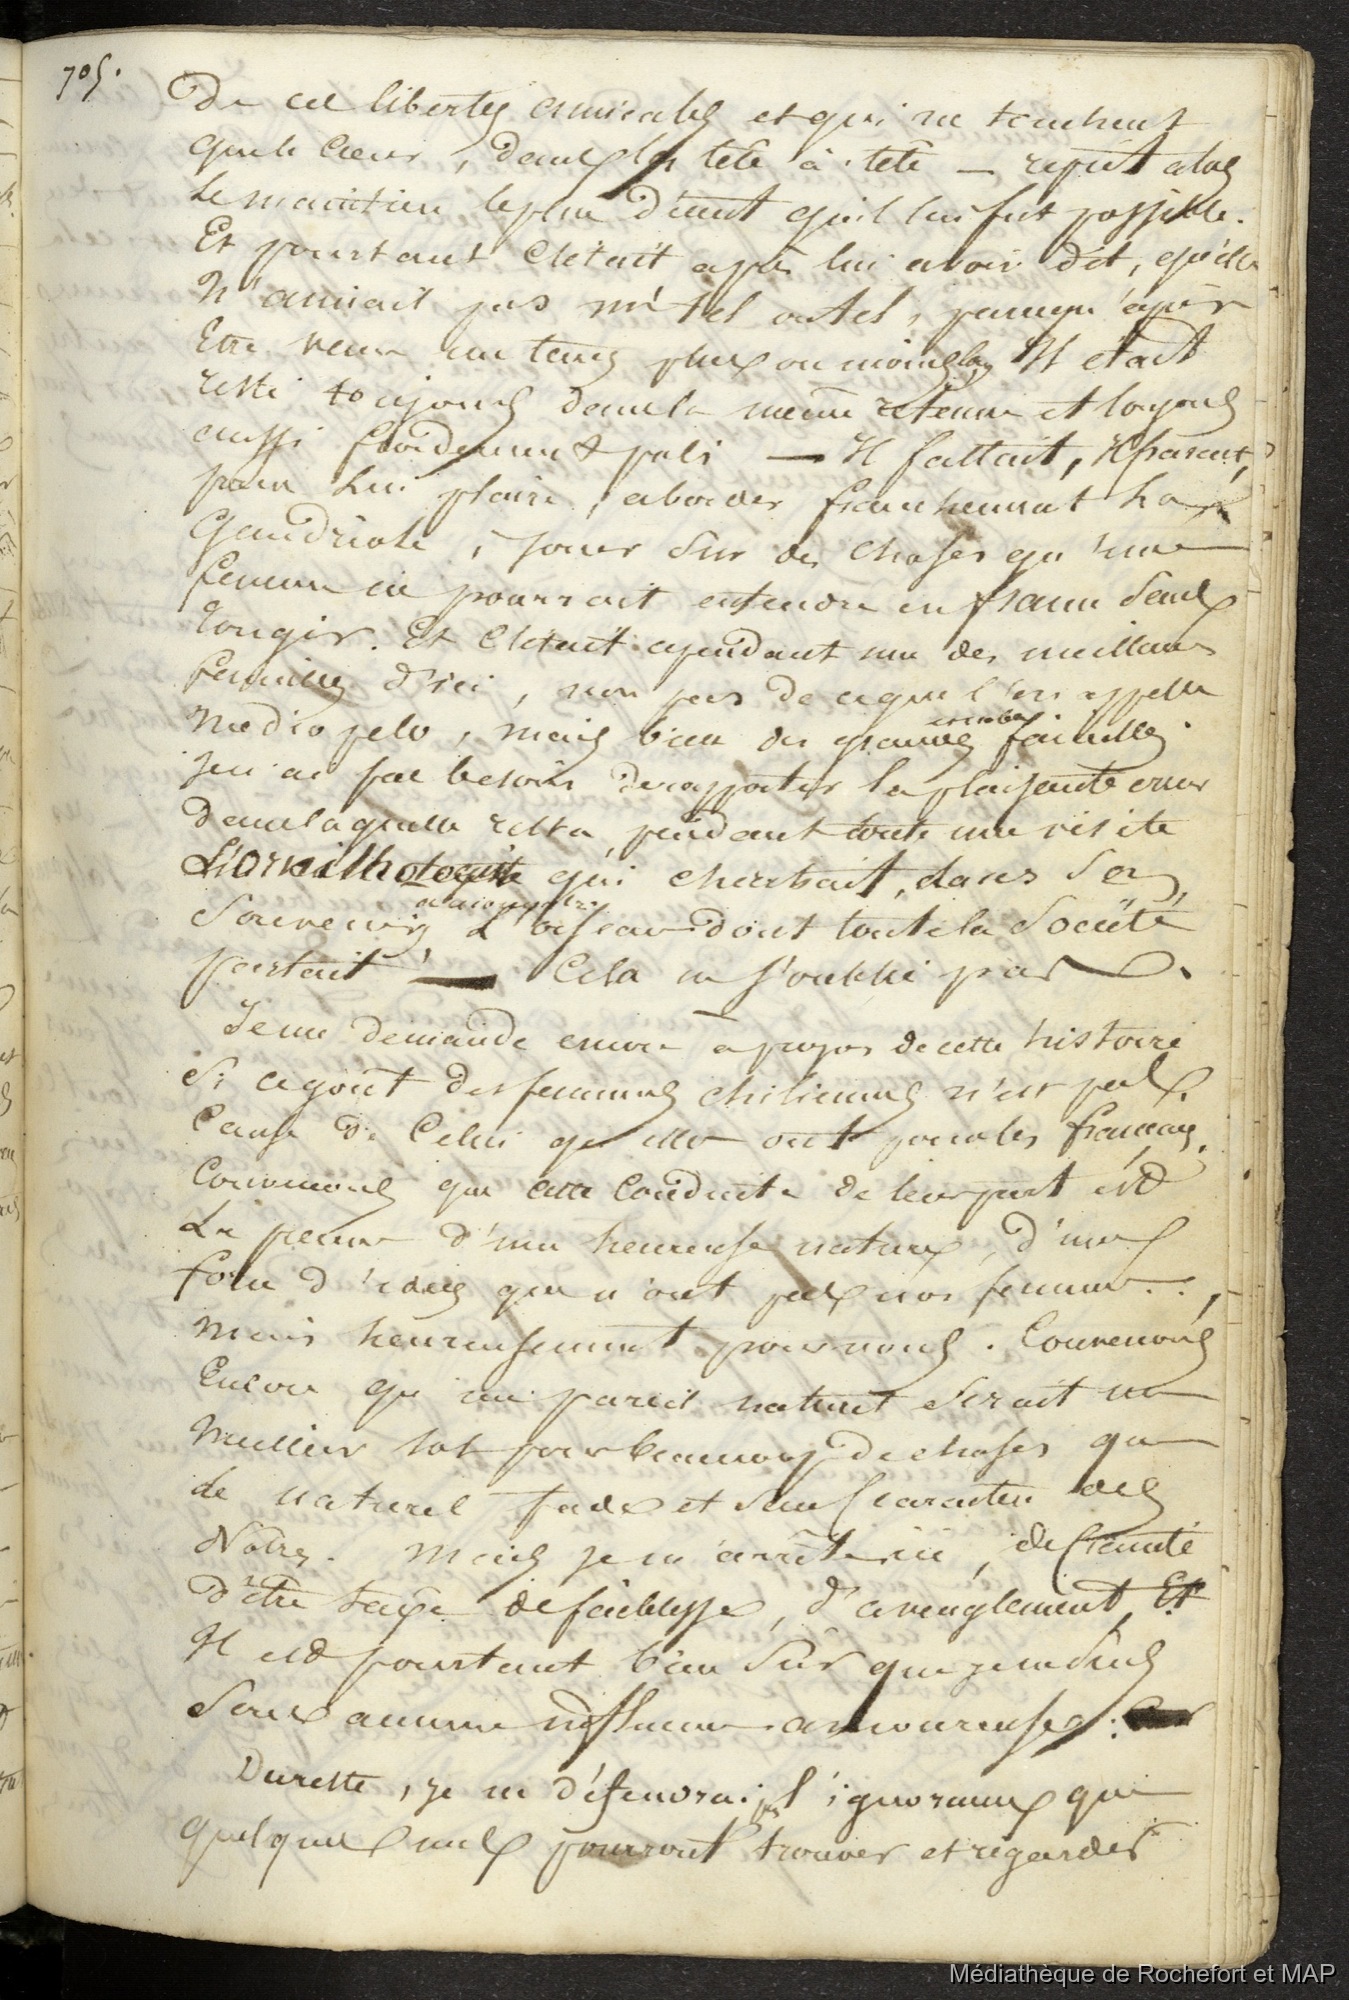 705.
De ces libertés amicales et qui ne touchent
que le Cœur, dans les tête à tête — reprit alors
Le maintien le plus décent qu'il lui fut possible.
Et pourtant C'était après lui avoir dit, qu'elle
N'aimait pas mr tel ou tel, parcequ'après
Etre venu un temps plus ou moins long Il était
resté toujours dans la même retenue et toujours
aussi froidement poli — Il fallait, Il parait,
pour Lui plaire, aborder franchement La
Gaudriole, jouer sur des choses qu'une
femme ne pourrait entendre en france sans
Rougir. Et C'était cependant une des meilleures
familles d'ici, non pas de ce que l'on appelle
Medio pelo, mais bien des grandes familles.
je n'ai pas besoin de rapporter la plaisante erreur
Dans laquelle resta, pendant toute une visite
L'ornithologiste qui cherchait, dans Ses
Souvenirs, L'oiseau dont toute la Société
parlait — Cela ne s'oublie pas.
Je me demande encore à propos de cette histoire
Si ce goût des femmes chiliennes n'est pas
Cause de Celui qu'elles ont pour les français.
Convenons que cette Conduite de leur part est
La preuve d'une heureuse nature, d'une
foule d'idées que n'ont pas nos femmes..,
Mais heureusement pour nous. Convenons
Encore qu'un pareil naturel serait un
Meilleur lot pour beaucoup de choses que
Le naturel fade et sans caractère des
Notres. Mais je m'arrête ici, de crainte
D'être taxé de faiblesse, d'aveuglement, Et
Il est pourtant bien Sûr que je ne suis
Sous aucune influence amoureuse.
Du reste, je ne défendrai pas l'ignorance que
quelques uns pourront trouver et regarder
Médiathèque de Rochefort et MAP